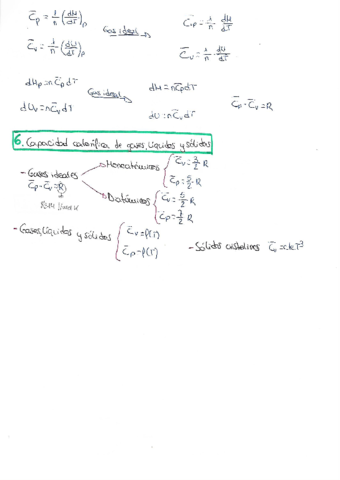 C̄p = 1/n (dH/dT)p   Gas ideal →   C̄p = 1/n · dH/dT
C̄v = 1/n · (dU/dT)p   C̄v = 1/n · dU/dT
dHp = n C̄p dT   Gas ideal →   dH = n C̄p dT
dUv = n C̄v dT   dU = n C̄v dT   C̄p - C̄v = R
6. Capacidad calorífica de gases, líquidos y sólidos
- Gases ideales → Monoatómicos { C̄v = 3/2 R
C̄p = 5/2 · R
C̄p - C̄v = R
→ Diatómicos { C̄v = 5/2 R
C̄p = 7/2 R
- Gases, líquidos y sólidos { C̄v = f(T)
C̄p = f(T)
- Sólidos cristalinos C̄v = kT³